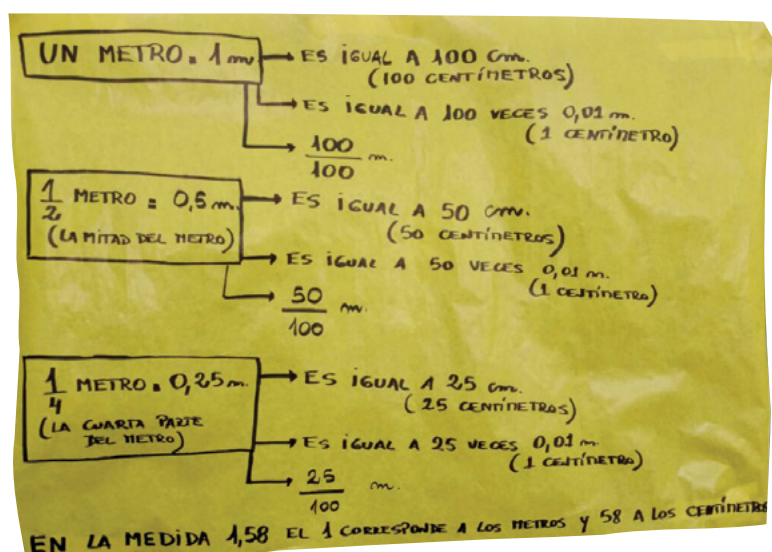 UN METRO = 1 m
ES IGUAL A 100 cm.
(100 CENTÍMETROS)
ES IGUAL A 100 VECES 0,01 m.
(1 CENTÍMETRO)
100
100 m.
1
2 METRO = 0,5 m.
(LA MITAD DEL METRO)
ES IGUAL A 50 cm.
(50 CENTÍMETROS)
ES IGUAL A 50 VECES 0,01 m.
(1 CENTÍMETRO)
50
100 m.
1
4 METRO = 0,25 m.
(LA CUARTA PARTE
DEL METRO)
ES IGUAL A 25 cm.
(25 CENTÍMETROS)
ES IGUAL A 25 VECES 0,01 m.
(1 CENTÍMETRO)
25
100 m.
EN LA MEDIDA 1,58 EL 1 CORRESPONDE A LOS METROS Y 58 A LOS CENTÍMETROS